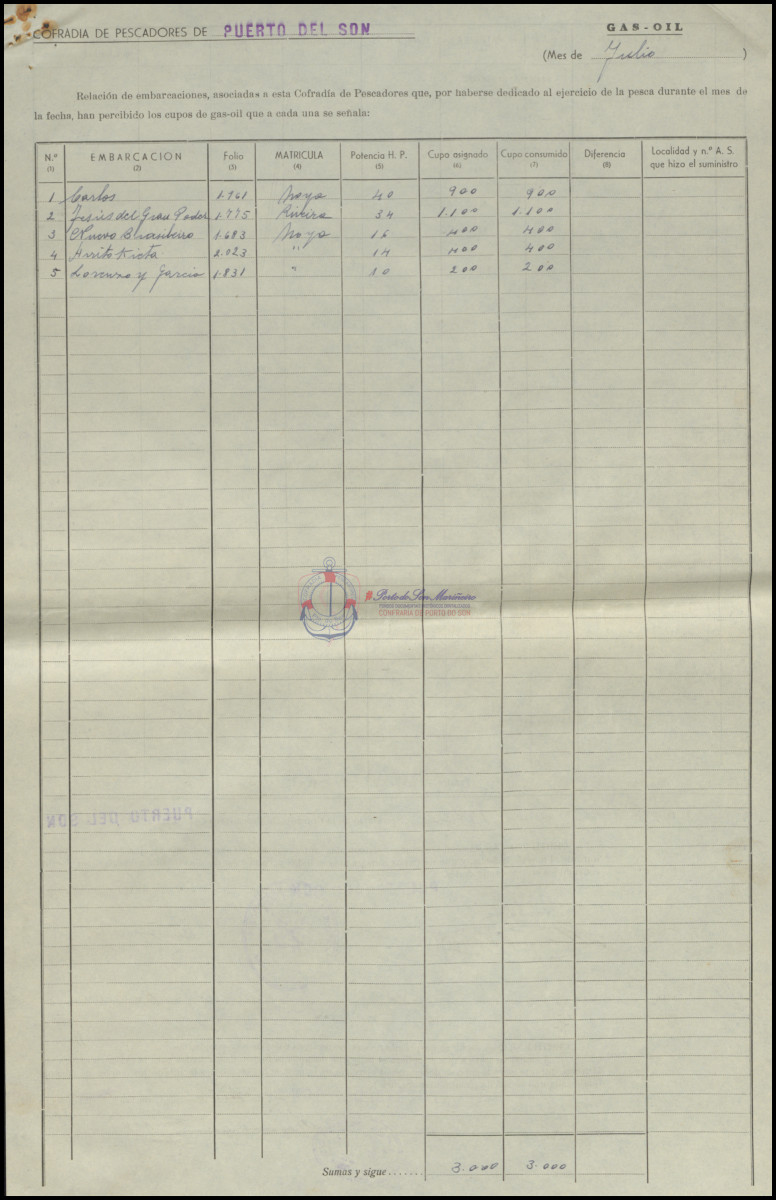 COFRADIA DE PESCADORES DE PUERTO DEL SON
GAS-OIL
(Mes de Julio )
Relación de embarcaciones, asociadas a esta Cofradía de Pescadores que, por haberse dedicado al ejercicio de la pesca durante el mes de
la fecha, han percibido los cupos de gas-oil que a cada una se señala:
N.º (1) EMBARCACION (2) Folio (3) MATRICULA (4) Potencia H. P. (5) Cupo asignado (6) Cupo consumido (7) Diferencia (8) Localidad y n.º A. S. que hizo el suministro
1 Carlos 1.761 Noya 40 900 900
2 Jesús del Gran Poder 1.775 Riveira 34 1.100 1.100
3 Nuevo 1.683 Noya 16 400 400
4 2.023 " 14 400 400
5 y Garcia 1.831 " 10 200 200
Porto do Son Mariñeiro
CONFRARÍA DE PORTO DO SON
PUERTO DEL SON
Sumas y sigue....... 3.000 3.000